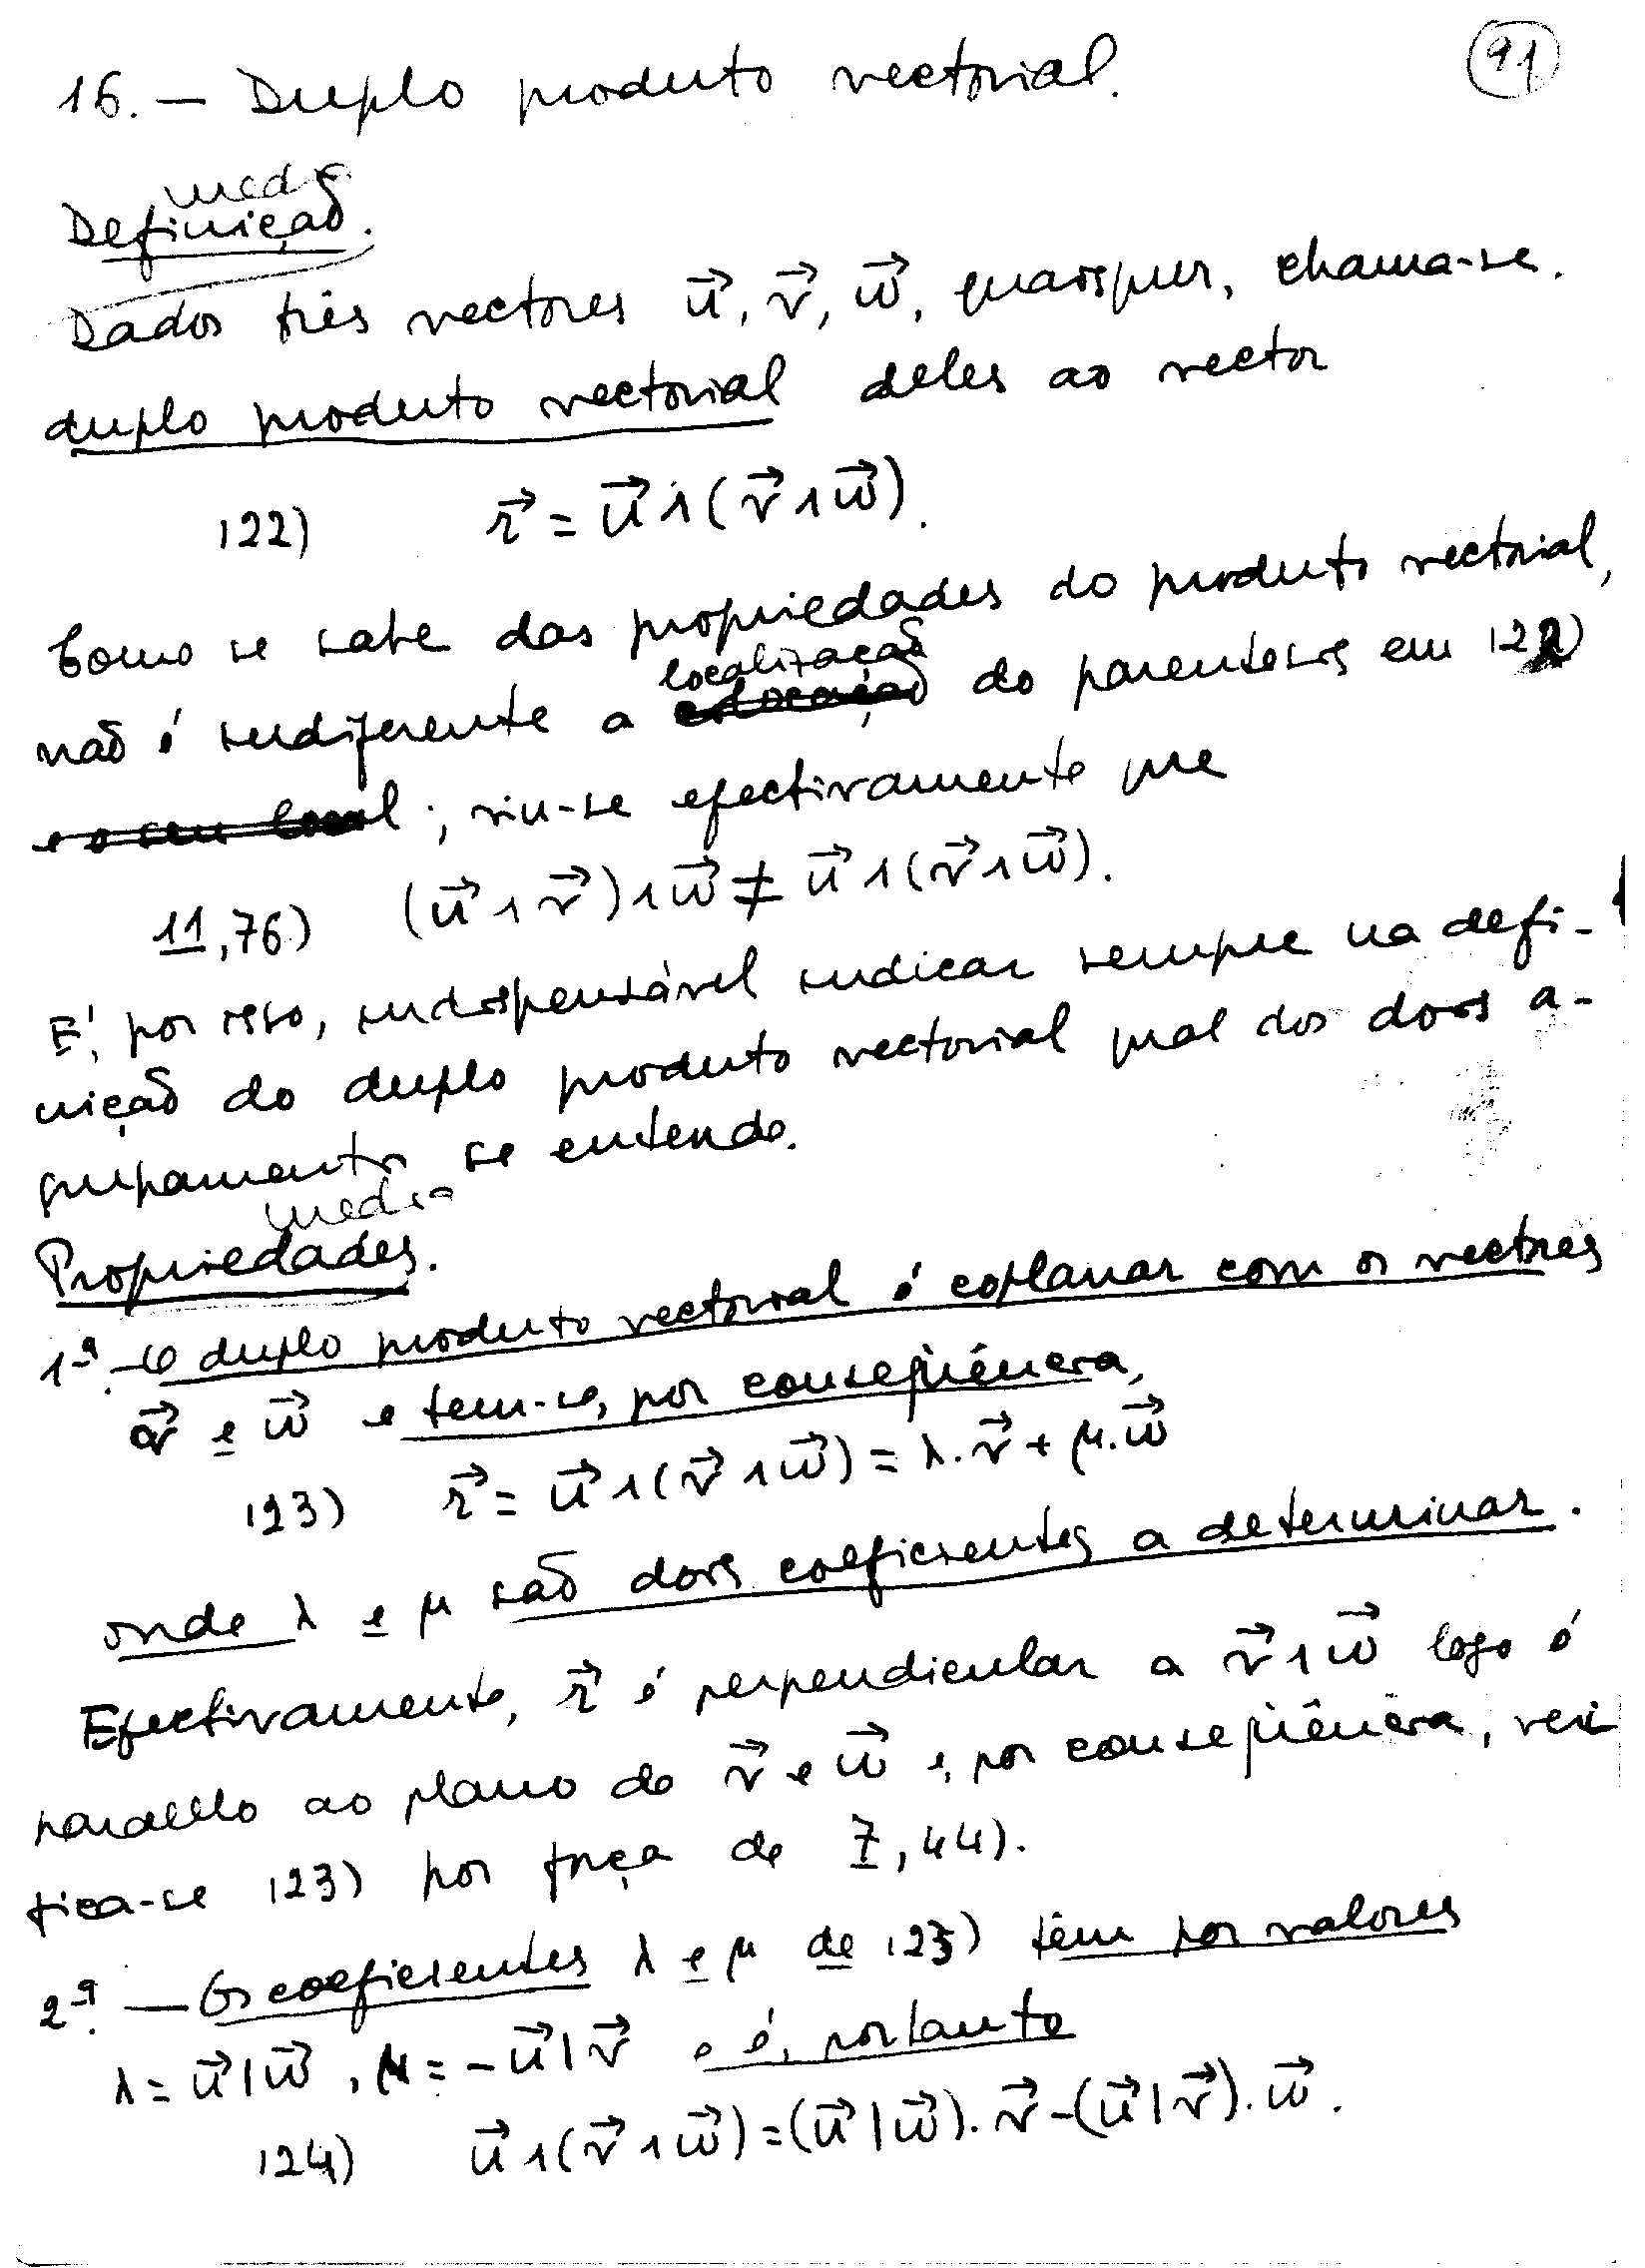 91
16. — Duplo produto vectorial.
Definição.
Dados três vectores u⃗, v⃗, w⃗, quaisquer, chama-se.
duplo produto vectorial deles ao vector
122) r⃗ = u⃗ ∧ (v⃗ ∧ w⃗).
Como se sabe das propriedades do produto vectorial,
localização
não é indiferente a colocação do parentesis em 122)
e o seu local ; viu-se efectivamente que
11,76) (u⃗ ∧ v⃗) ∧ w⃗ ≠ u⃗ ∧ (v⃗ ∧ w⃗).
É, por isso, indispensável indicar sempre na defi-
nição do duplo produto vectorial qual dos dois a-
grupamentos se entende.
Propriedades.
1ª. — O duplo produto vectorial é coplanar com os vectores
v⃗ e w⃗ e tem-se, por conseqüência,
123) r⃗ = u⃗ ∧ (v⃗ ∧ w⃗) = λ. v⃗ + μ. w⃗
onde λ e μ são dois coeficientes a determinar.
Efectivamente, r⃗ é perpendicular a v⃗ ∧ w⃗ logo é
paralelo ao plano de v⃗ e w⃗ e, por conseqüência, veri-
fica-se 123) por força de 7, 44).
2ª. — Os coeficientes λ e μ de 123) têm por valores
λ = u⃗ | w⃗, μ = − u⃗ | v⃗ e é, portanto
124) u⃗ ∧ (v⃗ ∧ w⃗) = (u⃗ | w⃗). v⃗ − (u⃗ | v⃗). w⃗.